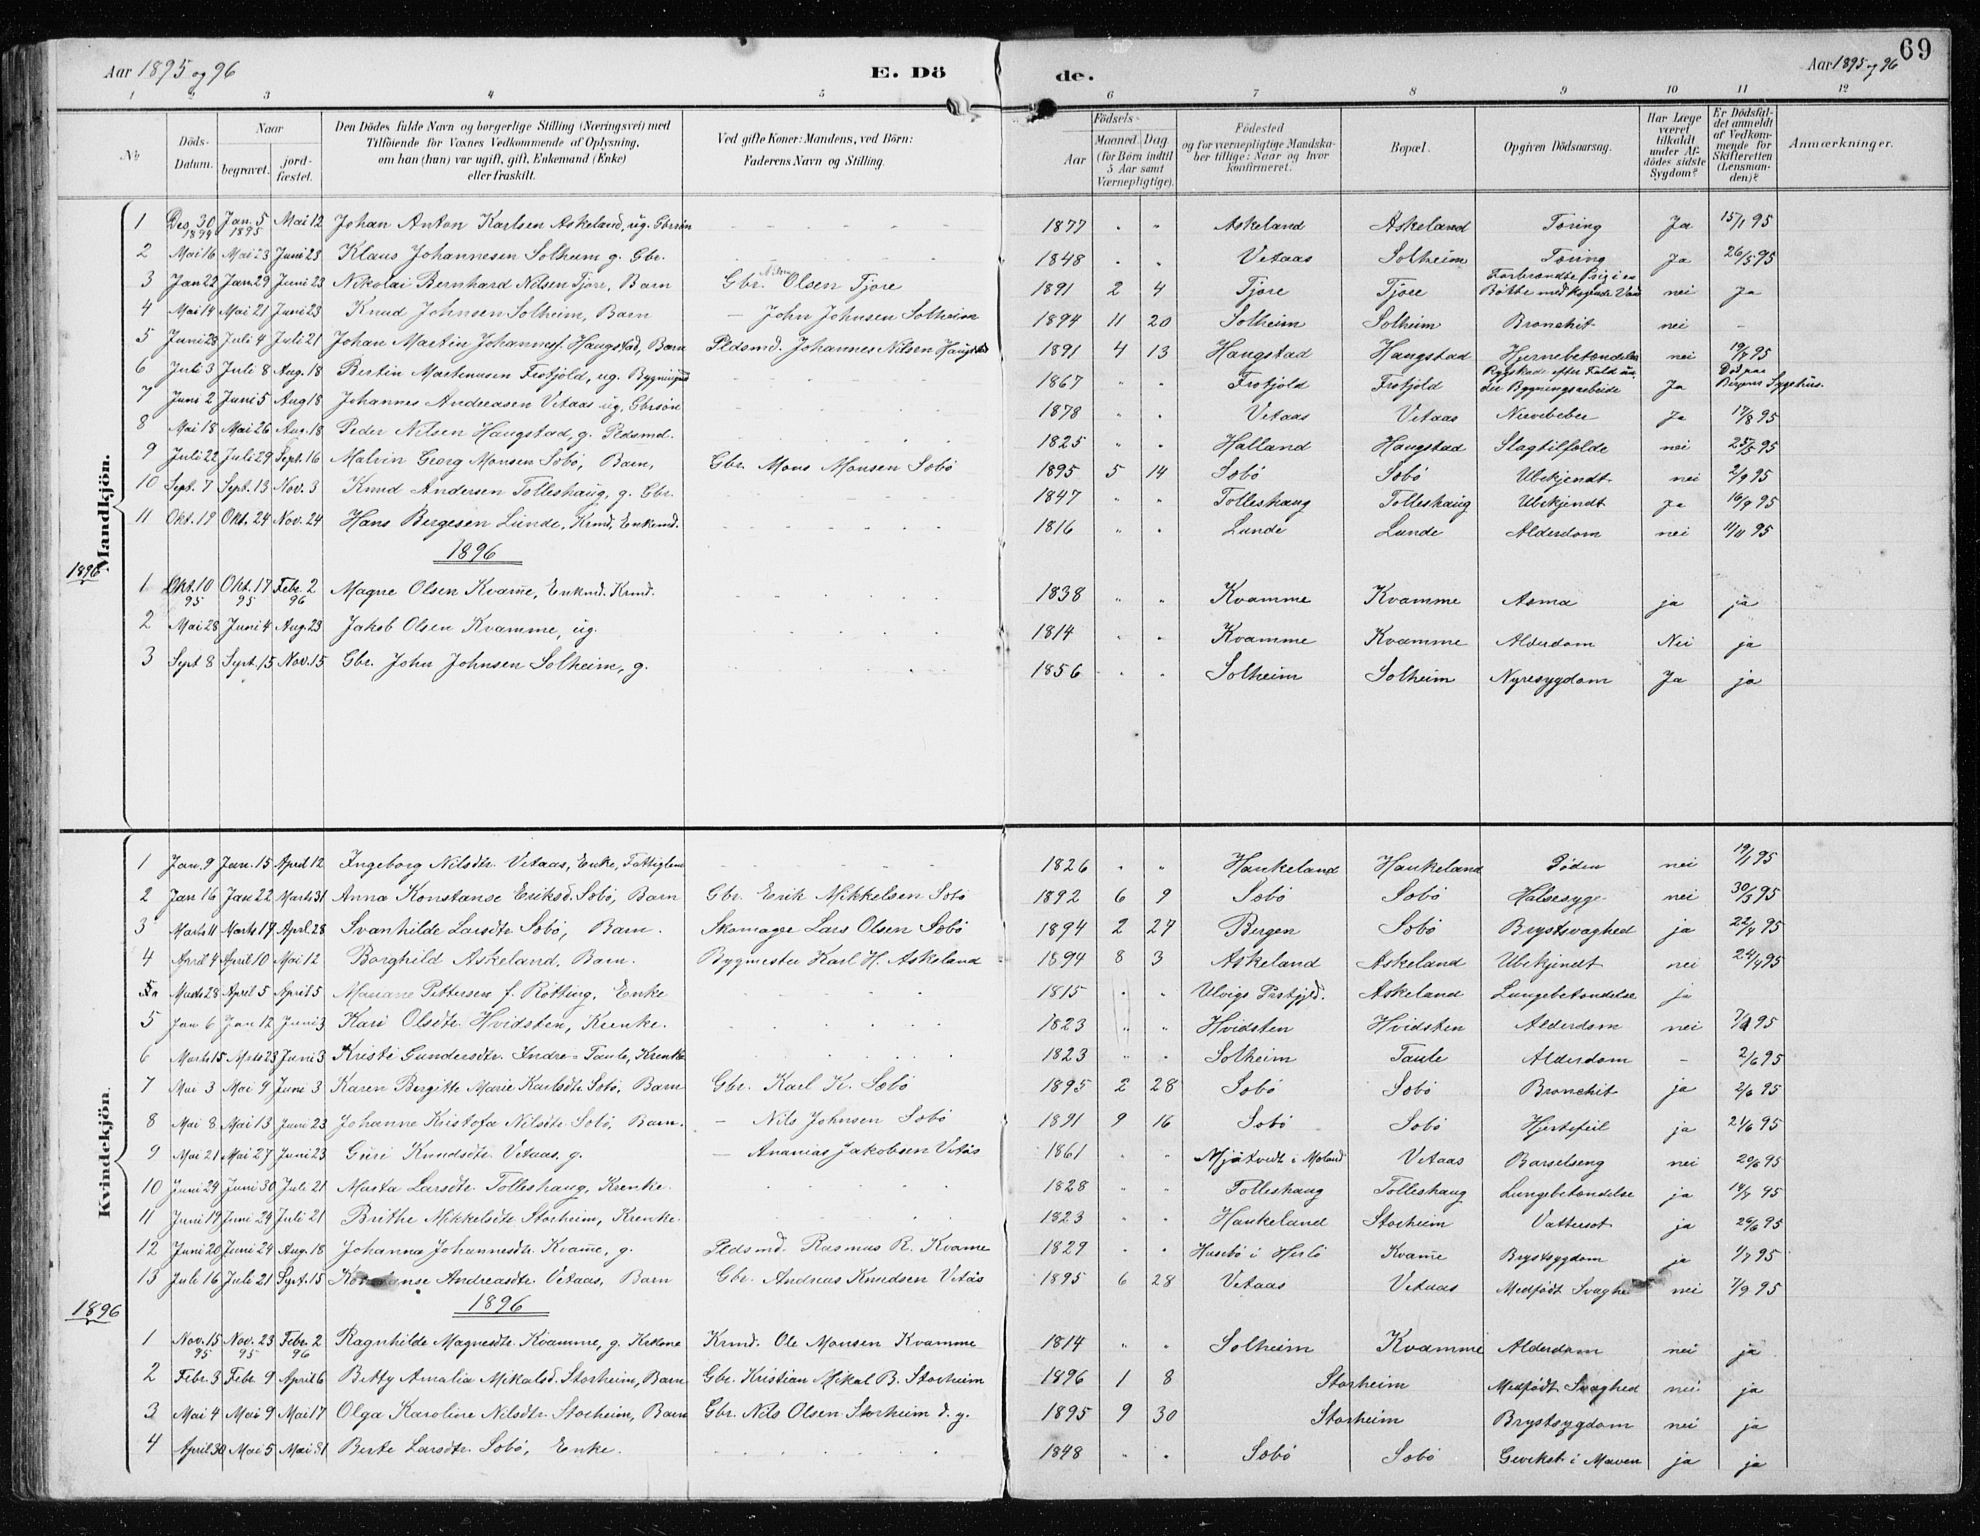 Aar 1895 og 96 E. Dö de. Aar 1895 og 96 69
1 2 3 4 5 6 7 8 9 10 11 12
№ Döds-Datum. Naar begravet. jordfæstet. Den Dödes fulde Navn og borgerlige Stilling (Næringsvei) med Tilföiende for Voxnes Vedkommende af Oplysning, om han (hun) var ugift, gift, Enkemand (Enke) eller fraskilt. Ved gifte Koner: Mandens, ved Börn: Faderens Navn og Stilling. Födsels- Aar Maaned Dag (for Börn indtil 5 Aar samt Værnepligtige). Födested og for værnepligtige Mandskaber tillige: Naar og hvor konfirmeret. Bopæl. Opgiven Dödsaarsag. Har Læge været tilkaldt under Afdödes sidste Sygdom? Er Dödsfaldet anmeldt af Vedkommende for Skifteretten (Lensmanden)? Anmærkninger.
Mandkjön.
1 Des. 30 1894 Jan. 5 1895 Mai 12 Johan Anton Karlsen Askeland, ug. Gbrsön 1877 " " Askeland Askeland Tæring Ja 15/1 95
2 Mai 16 Mai 23 Juni 23 Klaus Johannesen Solheim g. Gbr. 1848 " " Vetaas Solheim Tæring Ja 26/5 95
3 Jan 22 Jan. 29 Juni 23 Nikolai Bernhard Nilsen Tjore, Barn Gbr. Nils Olsen Tjore 1891 2 4 Tjore Tjore Forbrændte sig i en Bøtte med kogende Vand nei Ja
4 Mai 14 Mai 21 Juni 23 Knud Johnsen Solheim, Barn — John Johnsen Solheim 1894 11 20 Solheim Solheim Bronchit nei –
5 Juni 28 Juli 4 Juli 21 Johan Martin Johannesf. Haugstad, Barn Pldsmd. Johannes Nilsen Haugstad 1891 4 13 Haugstad Haugstad Hjernebetændelse nei 19/7 95
6 Juli 3 Juli 8 Aug. 18 Bertin Martenusen Frotjold, ug. 1867 " " Frotjold Frotjold Rygskade efter Fald under Bygningsarbeide Ja Död paa Bergens Sygehus.
7 Juni 2 Juni 5 Aug 18 Johannes Andreasen Vetaas ug. Gbrsön 1878 " " Vetaas Vetaas Ja 17/8 95
8 Mai 18 Mai 26 Aug. 18 Peder Nilsen Haugstad, g. Pldsmd. 1825 " " Halland Haugstad Slagtilfælde nei 25/5 95
9 Juli 22 Juli 29 Sept. 16 Georg Monsen Sobö, Barn, Gbr. Mons Monsen Sobö 1895 5 14 Sobö Sobö Ubekjendt nei 2/9 95
10 Sept. 7 Sept. 13 Nov. 3 Knud Andersen Tolleshaug, g. Gbr. 1847 " " Tolleshaug Tolleshaug Ubekjendt Ja 16/9 95
11 Okt. 19 Okt. 24 Nov. 24 Hans Bergesen Lunde, Krmd, Enkemd. 1816 " " Lunde Lunde Alderdom nei 11/11 95
1896
1896
1 Okt. 10 95 Okt. 17 95 Febr. 2 96 Magne Olsen Kvam̄e, Enkmd. Krmd. 1838 " " Kvamme Kvamme Asma ja ja
2 Mai 28 Juni 4 Aug. 23 Jakob Olsen Kvamme, ug. 1814 " " Kvamme Kvamme Alderdom Nei ja
3 Sept 8 Sept. 15 Nov. 15 Gbr. John Johnsen Solheim, g. 1856 " " Solheim Solheim Nyresygdom Ja ja
Kvindekjön.
1 Jan. 9 Jan. 15 April 12 Ingeborg Nilsdtr. Vetaas, Enke, Fattiglem 1826 " " Haukeland Haukeland nei 19/1 95
2 Jan 16 Jan 22 Marts 31 Anna Konstanse Eriksd. Sobö, Barn Gbr. Erik Mikkelsen Sobö 1892 6 9 Sobö Sobö Halsesyge nei 30/3 95
3 Marts 11 Marts 19 April 28 Svanhilde Larsdtr Sobö, Barn. Skomager Lars Olsen Sobö 1894 2 27 Bergen Sobö Brystsvaghed ja 22/4 95
4 April 4 April 10 Mai 12 Borghild Askeland, Barn. Bygmester Karl H. Askeland 1894 8 3 Askeland Askeland Ubekjendt nei 24/4 95
Marts 28 April 5 April 5 Mariane Pettersen f. Rötting, Enke 1815 " " Ulvigs Prstgjld. Askeland Lungebetændelse ja
5 Jan 6 Jan 12 Juni 3 Kari Olsdtr. Hvidsten, Krenke. 1823 " " Hvidsten Hvidsten Alderdom nei
6 Marts 15 Marts 23 Juni 3 Kristi Gundersdtr. Indre-Taule, Krenke 1823 " " Solheim Taule Alderdom – 2/6 95
7 Mai 3 Mai 9 Juni 3 Karen Bergitte Marie Karlsdtr Sobö, Barn Gbr. Karl K. Sobö 1895 2 28 Sobö Sobö Bronchit ja 2/6 95
8 Mai 8 Mai 13 Juni 23 Johanne Kristofa Nilsdtr Sobö, Barn. — Nils Johnsen Sobö 1891 9 16 Sobö Sobö Hjertefeil ja 21/6 95
9 Mai 21 Mai 27 Juni 23 Guri Knudsdtr. Vetaas, g. — Ananias Jakobsen Vetås 1861 " " Mjåtvedt i Moland Vetaas Barselseng nei 20/6 95
10 Juni 24 Juni 30 Juli 21 Marta Larsdtr. Tolleshaug, Krenke. 1828 " " Tolleshaug Tolleshaug Lungebetændelse ja 14/7 95
11 Juni 19 Juni 24 Juli 21 Brithe Mikkelsdtr Storheim, Krenke. 1823 " " Haukeland Storheim Vattersot ja 26/6 95
12 Juni 20 Juni 24 Aug. 18 Johanna Johannesdtr. Kvam̄e, g. Pldsmd. Rasmus R. Kvame 1829 " " Husebö i Herlö Kvam̄e Brystsygdom ja 1/7 95
13 Juli 16 Juli 21 Sept. 15 Konstanse Andreasdtr. Vetaas, Barn Gbr. Andreas Knudsen Vetås 1895 6 28 Vetaas Vetaas Medfödt Svaghe nei 7/9 95
1896
1896
1 Nov. 15 95 Nov. 23 95 Febr. 2 96 Ragnhilde Magnesdtr. Kvamme, g. Krkone Krmd. Ole Monsen Kvamme 1814 " " Solheim Kvamme Alderdom nei ja
2 Febr. 3 Febr. 9 April 6 Betty Amalia Mikalsd. Storheim, Barn Gbr. Kristian Mikal B. Storheim 1896 1 8 Storheim Medfödt Svaghed nei ja
3 Mai 4 Mai 9 Mai 17 Olga Karoline Nilsdtr. Storheim, Barn Gbr. Nils Olsen Storheim d. y. 1895 9 30 Storheim Brystsygdom nei ja
4 April 30 Mai 5 Mai 31 Berte Larsdtr. Sobö, Enke. 1848 " " Sobö Sobö i Maven ja ja